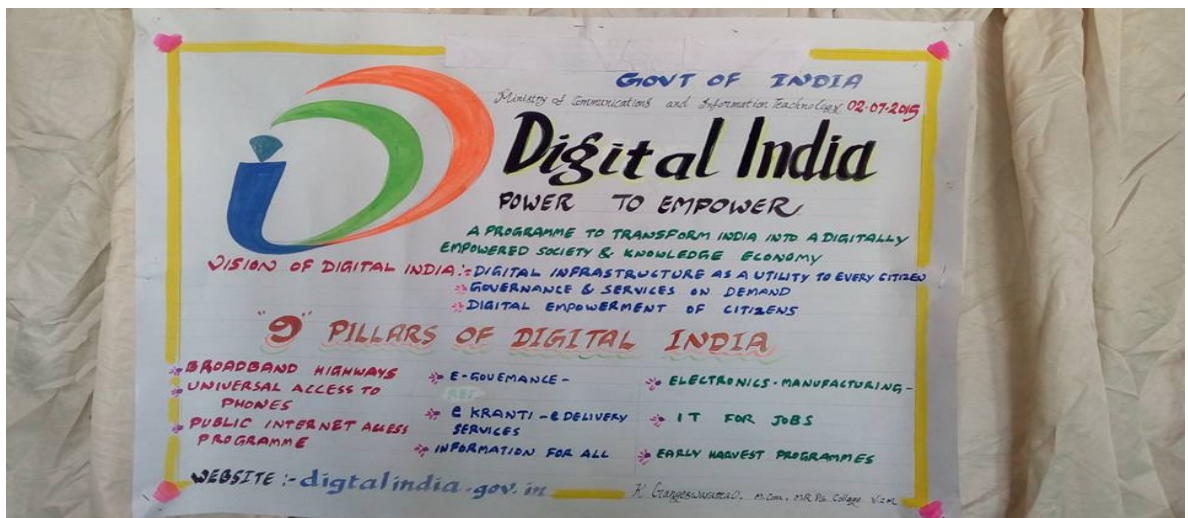 GOVT OF INDIA
Ministry of Communications and Information Teachnology 02-07-2015
Digital India
POWER TO EMPOWER
A PROGRAMME TO TRANSFORM INDIA INTO A DIGITALLY
EMPOWERED SOCIETY & KNOWLEDGE ECONOMY
VISION OF DIGITAL INDIA:- DIGITAL INFRASTRUCTURE AS A UTILITY TO EVERY CITIZEN
GOVERNANCE & SERVICES ON DEMAND
DIGITAL EMPOWERMENT OF CITIZENS
"9" PILLARS OF DIGITAL INDIA
BROADBAND HIGHWAYS
UNIVERSAL ACCESS TO
PHONES
PUBLIC INTERNET ACCESS
PROGRAMME
E-GOVEMANCE-
e KRANTI - e DELIVERY
SERVICES
INFORMATION FOR ALL
ELECTRONICS-MANUFACTURING-
IT FOR JOBS
EARLY HARVEST PROGRAMMES
WEBSITE:- digtalindia.gov.in
M.Com, MR PG College VZM